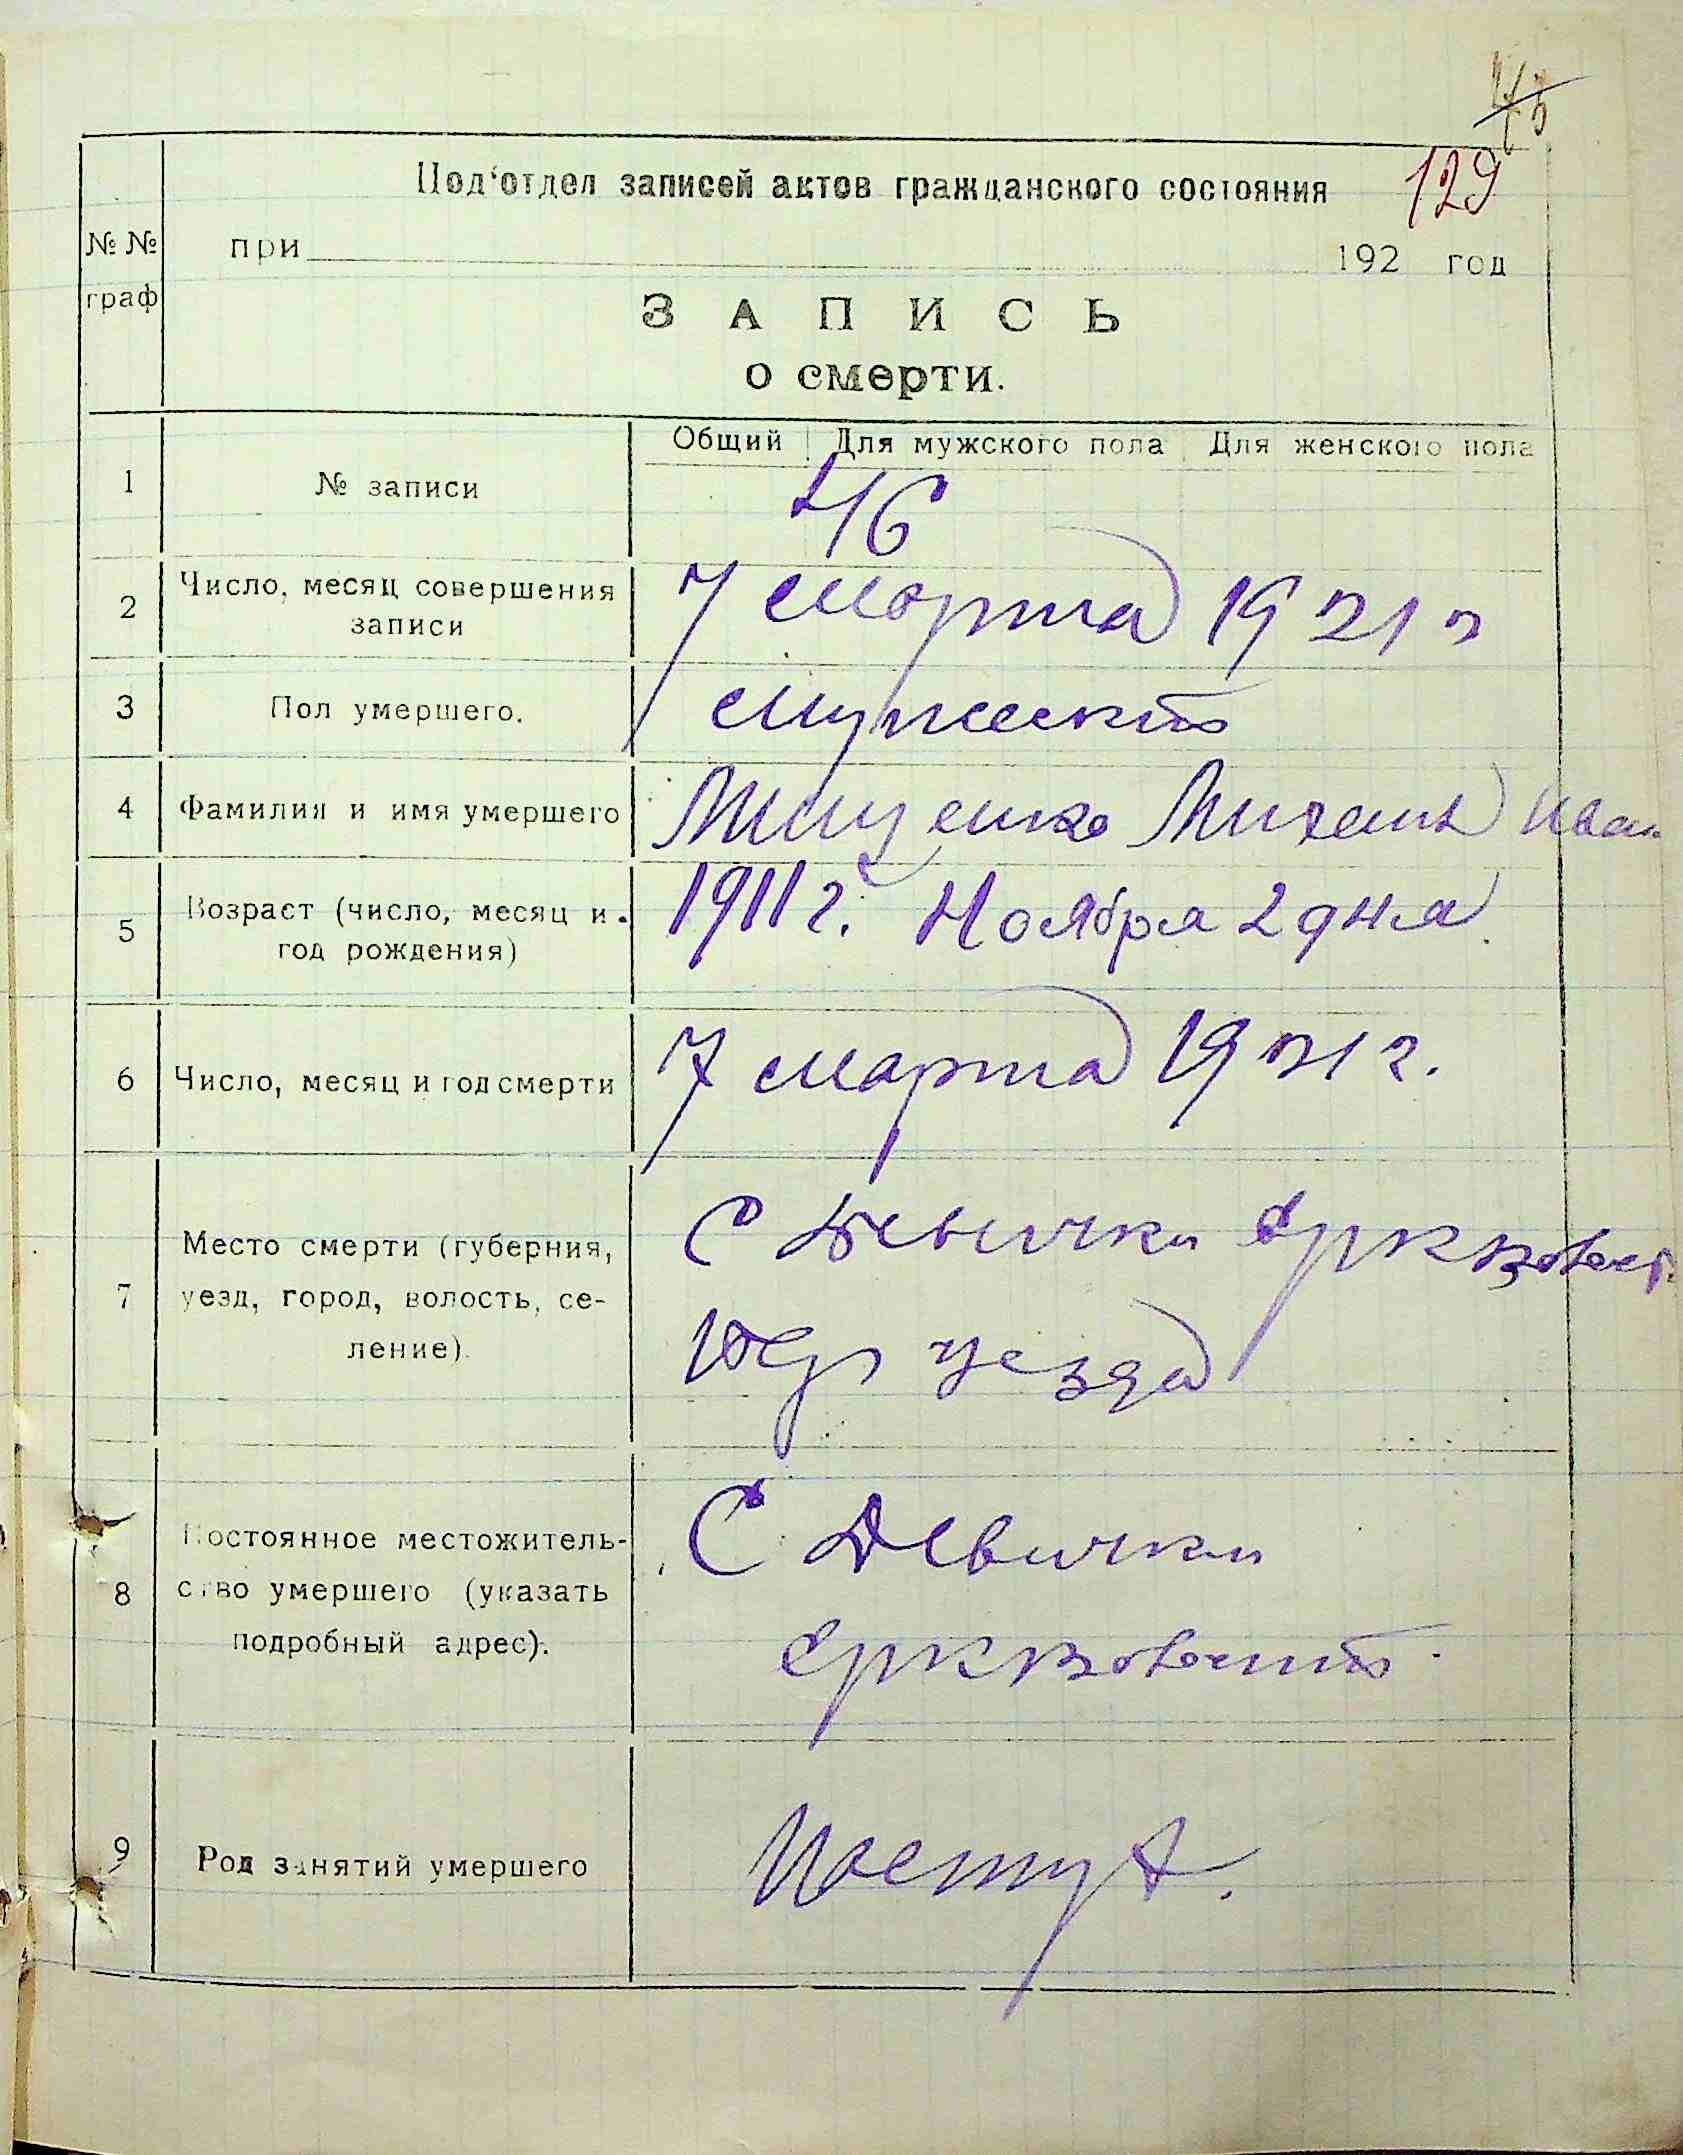 129
Под'отдел записей актов гражданского состояния
№ №
граф
при 192 год
ЗАПИСЬ
о смерти.
Общий Для мужского пола Для женского пола
1 № записи 46
2 Число, месяц совершения
записи
7 марта 1921 г
3 Пол умершего. мужской
4 Фамилия и имя умершего Мищенко Михаил Иван
5 Возраст (число, месяц и
год рождения)
1911 г. Ноября 2 дня
6 Число, месяц и год смерти 7 марта 1921 г.
7 Место смерти (губерния,
уезд, город, волость, се-
ление).
С Девички
уезда
8 Постоянное местожитель-
ство умершего (указать
подробный адрес).
С Девички
9 Род занятий умершего Пастух.